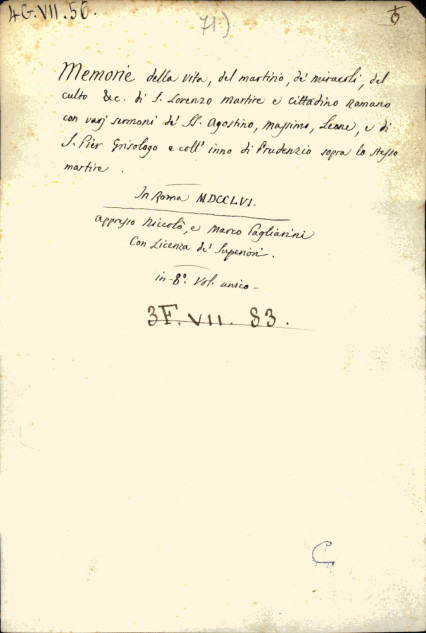 4G.VII.56.
71)
6
Memorie della vita, del martirio, de' miracoli, del
culto &c. di S. Lorenzo martire e cittadino Romano
con varj sermoni de' SS. Agostino, Massimo, Leone, e di
S. Pier Grisologo e coll' inno di Prudenzio sopra lo stesso
martire.
In Roma MDCCLVI.
appresso Niccolò, e Marco Pagliarini
Con Licenza de' Superiori.
in-8°. Vol. unico-
3F. VII. 83.
C